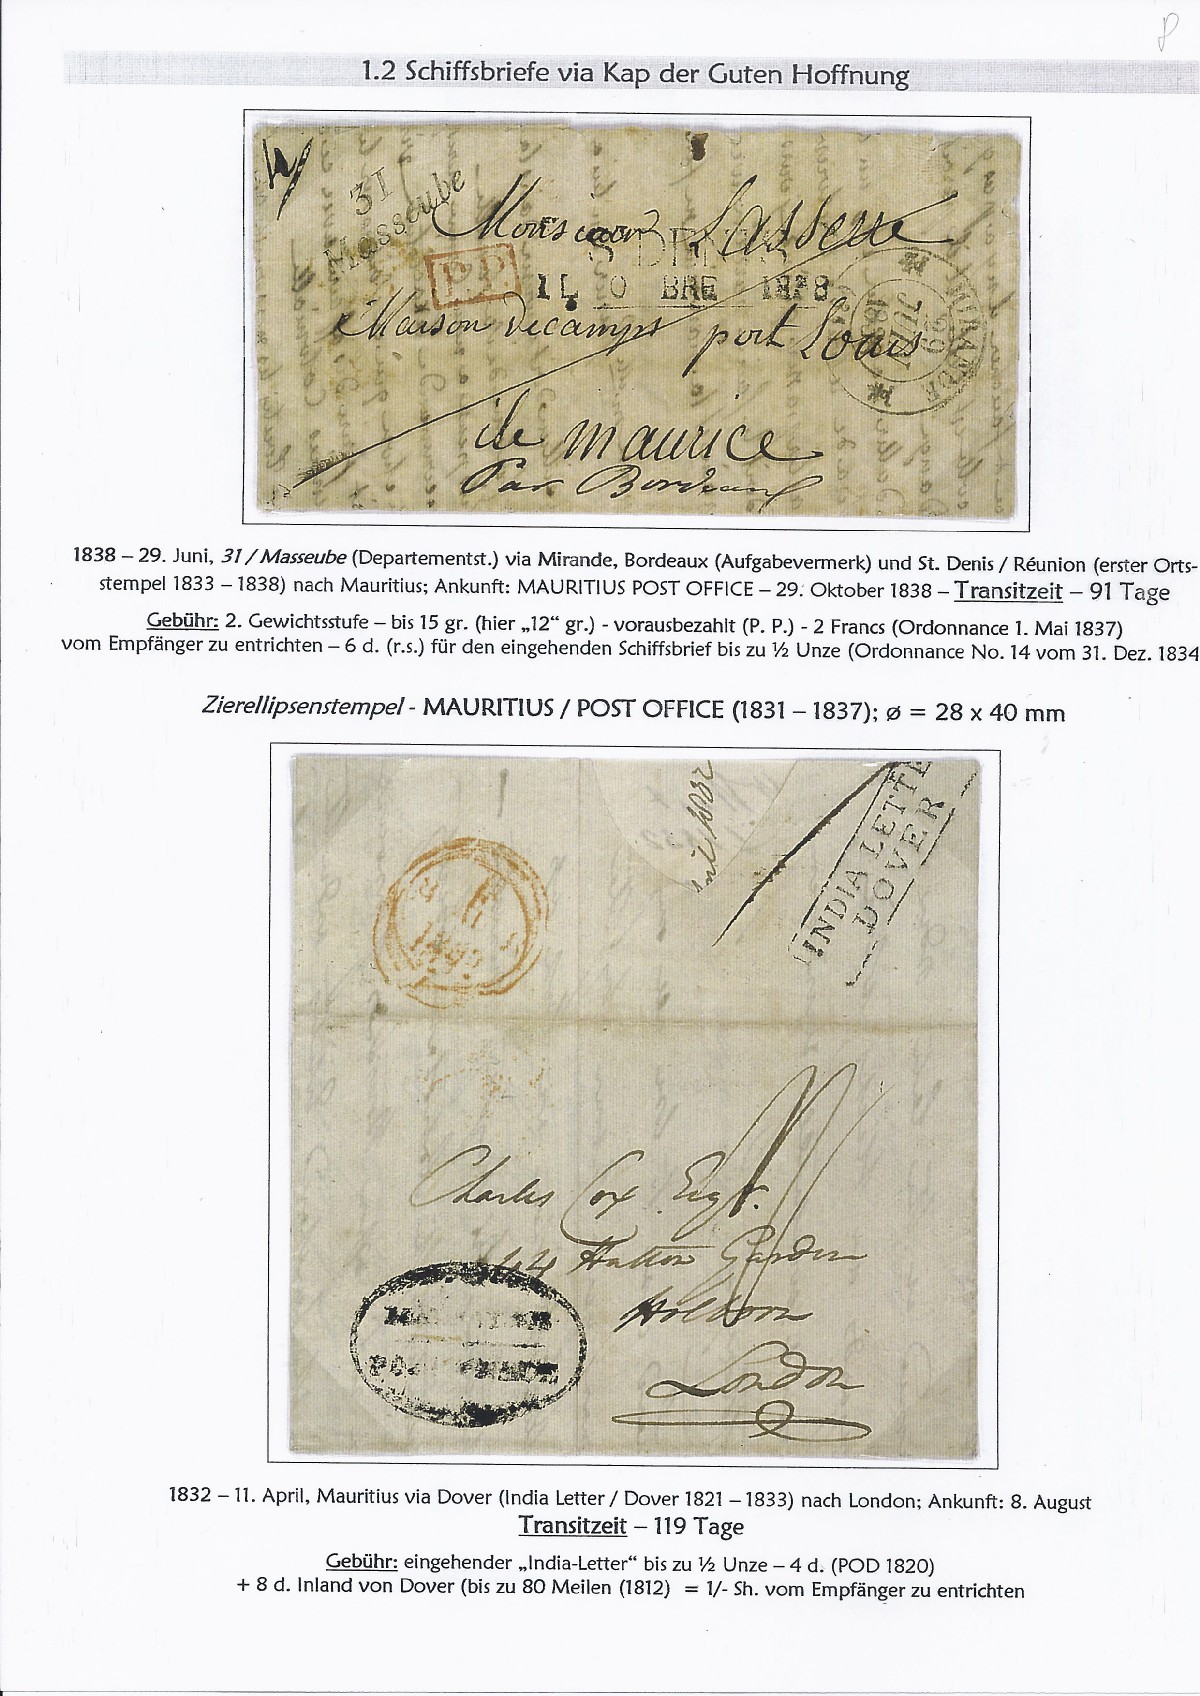 1.2 Schiffsbriefe via Kap der Guten Hoffnung
31
Masseube
Monsieur Lasserre
S. DENIS
P.P.
BRE
Maison Decamps port Louis
MIRANDE
29
JUIN
ile maurice
Par Bordeaux
1838 – 29. Juni, 31 / Masseube (Departementst.) via Mirande, Bordeaux (Aufgabevermerk) und St. Denis / Réunion (erster Orts-
stempel 1833 – 1838) nach Mauritius; Ankunft: MAURITIUS POST OFFICE – 29. Oktober 1838 – Transitzeit – 91 Tage
Gebühr: 2. Gewichtsstufe – bis 15 gr. (hier „12“ gr.) - vorausbezahlt (P. P.) - 2 Francs (Ordonnance 1. Mai 1837)
vom Empfänger zu entrichten – 6 d. (r.s.) für den eingehenden Schiffsbrief bis zu ½ Unze (Ordonnance No. 14 vom 31. Dez. 1834
Zierellipsenstempel - MAURITIUS / POST OFFICE (1831 – 1837); ø = 28 x 40 mm
1832
INDIA LETTE
DOVER
Charles Cox Esqr.
44 Hatton Garden
Holborn
London
1832 – 11. April, Mauritius via Dover (India Letter / Dover 1821 – 1833) nach London; Ankunft: 8. August
Transitzeit – 119 Tage
Gebühr: eingehender „India-Letter“ bis zu ½ Unze – 4 d. (POD 1820)
+ 8 d. Inland von Dover (bis zu 80 Meilen (1812) = 1/- Sh. vom Empfänger zu entrichten